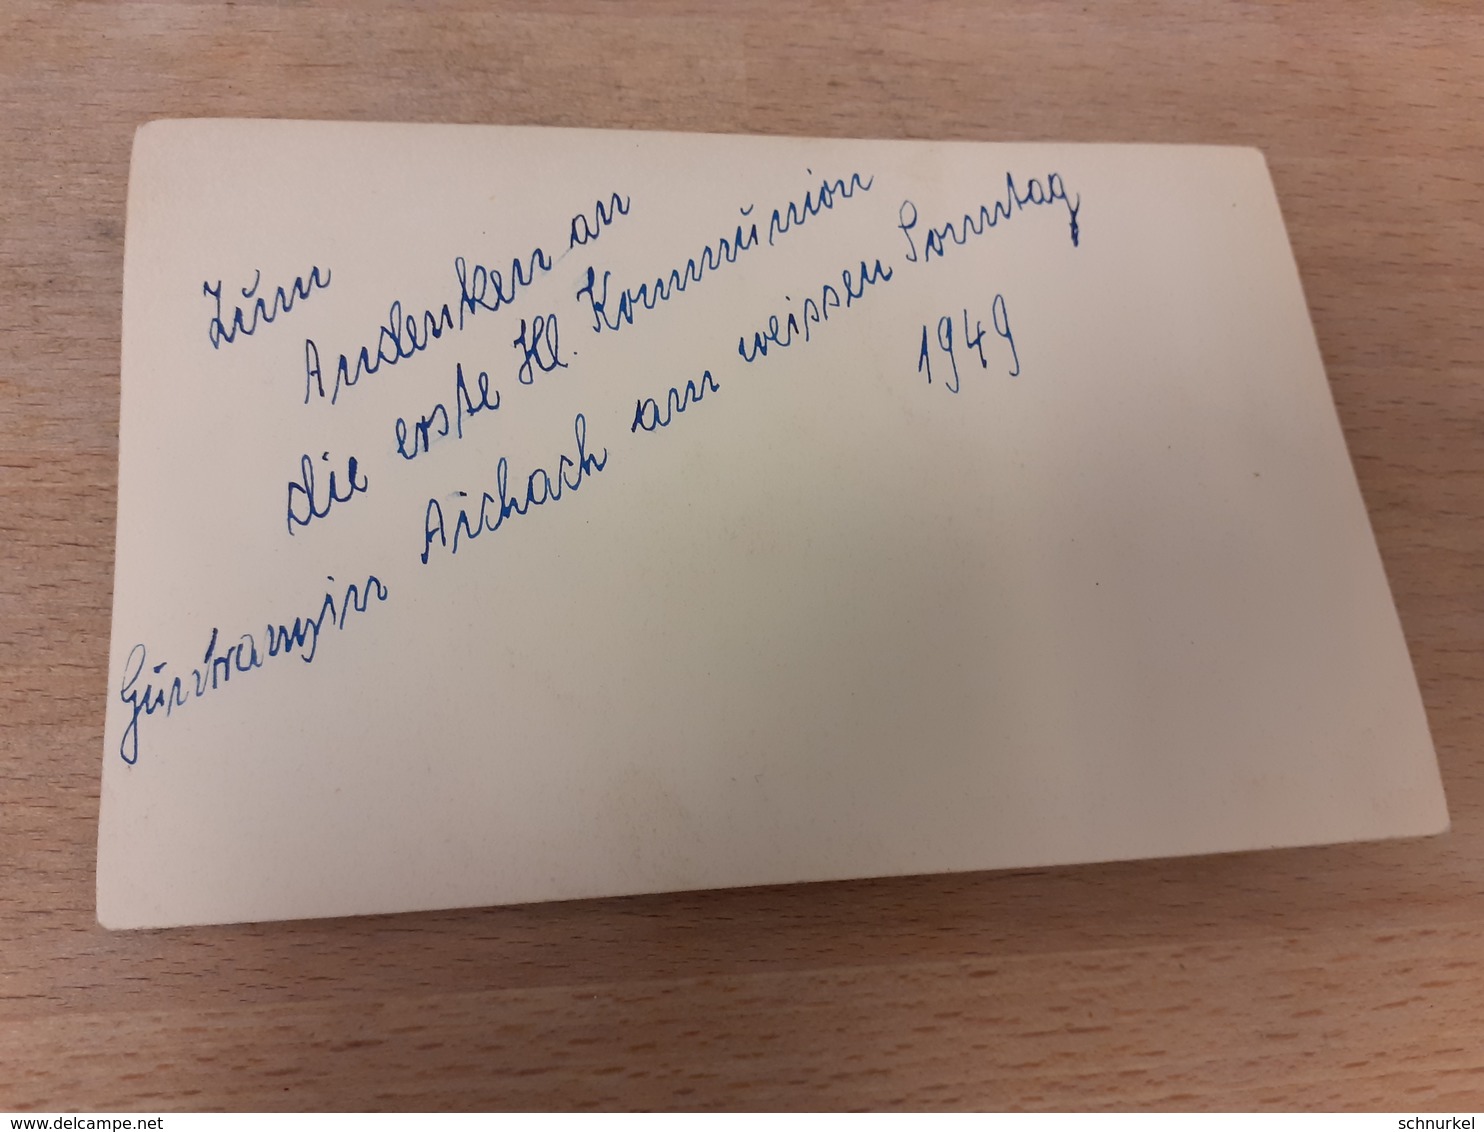 Zum
Andenken an
die erste Hl. Kommunion
Aichach am weissen Sonntag
1949
www.delcampe.net
schnurkel